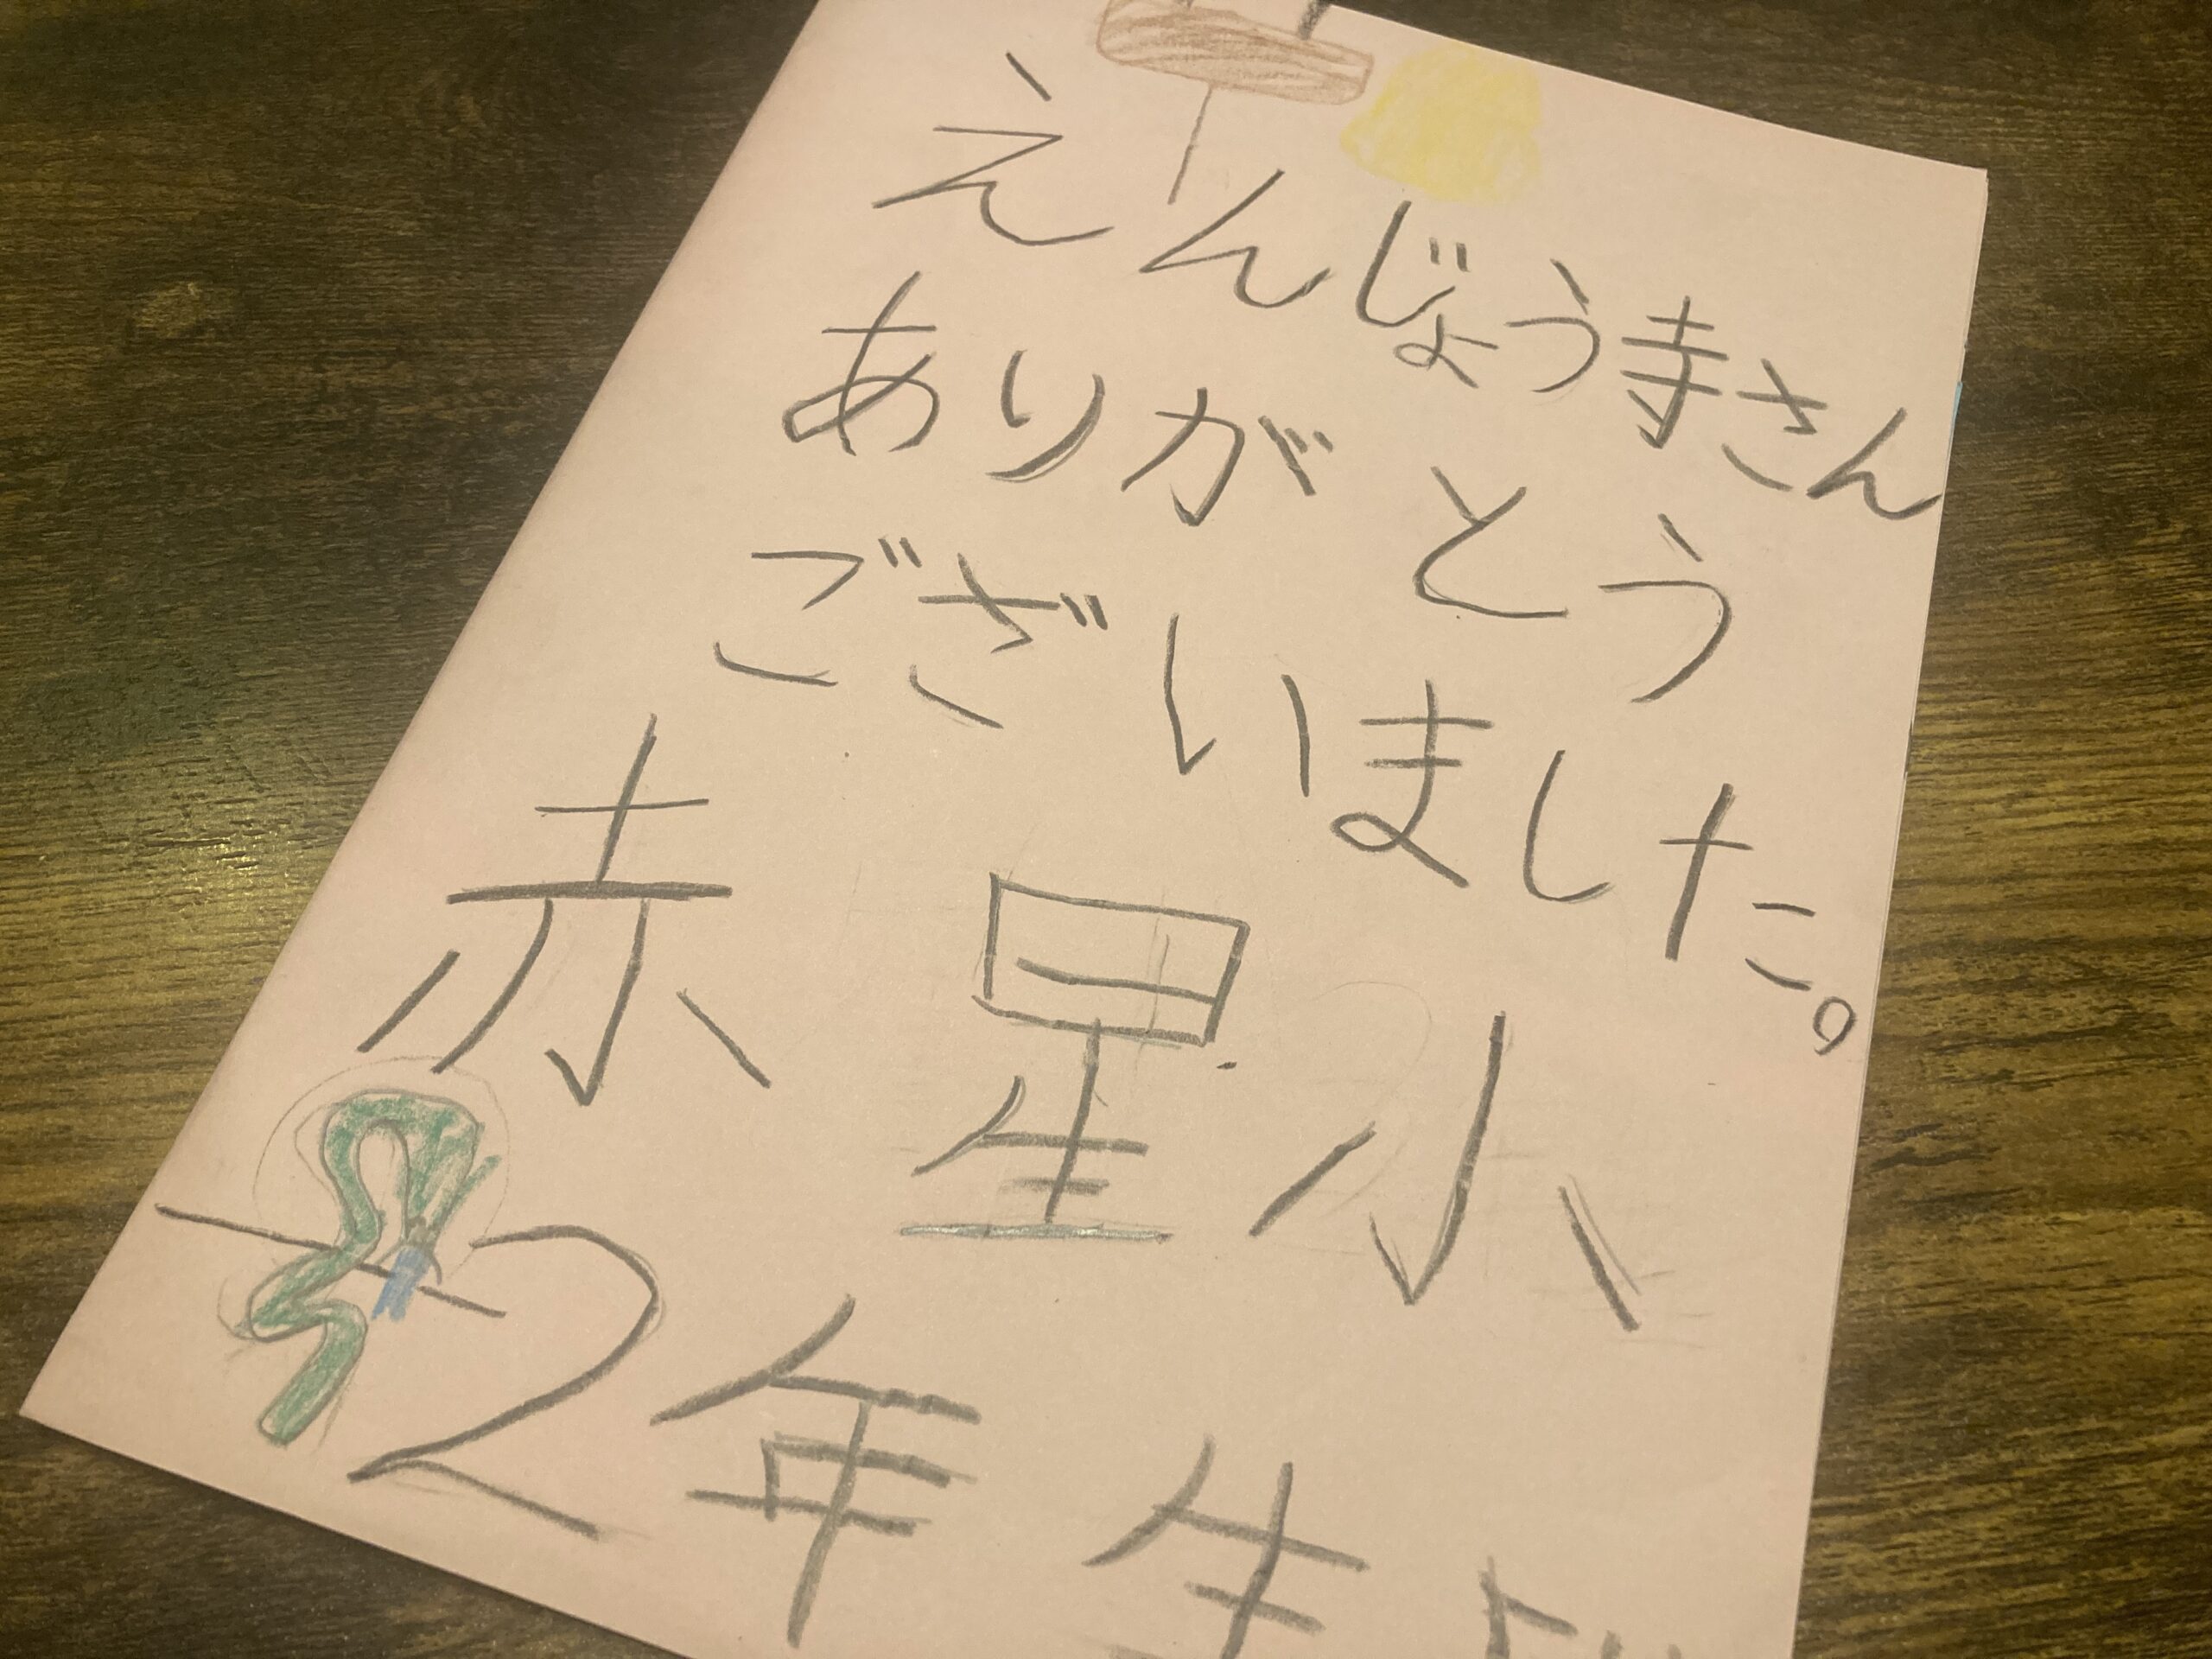 えんじょう寺さん
ありがとう
ございました。
赤星小
2年生より